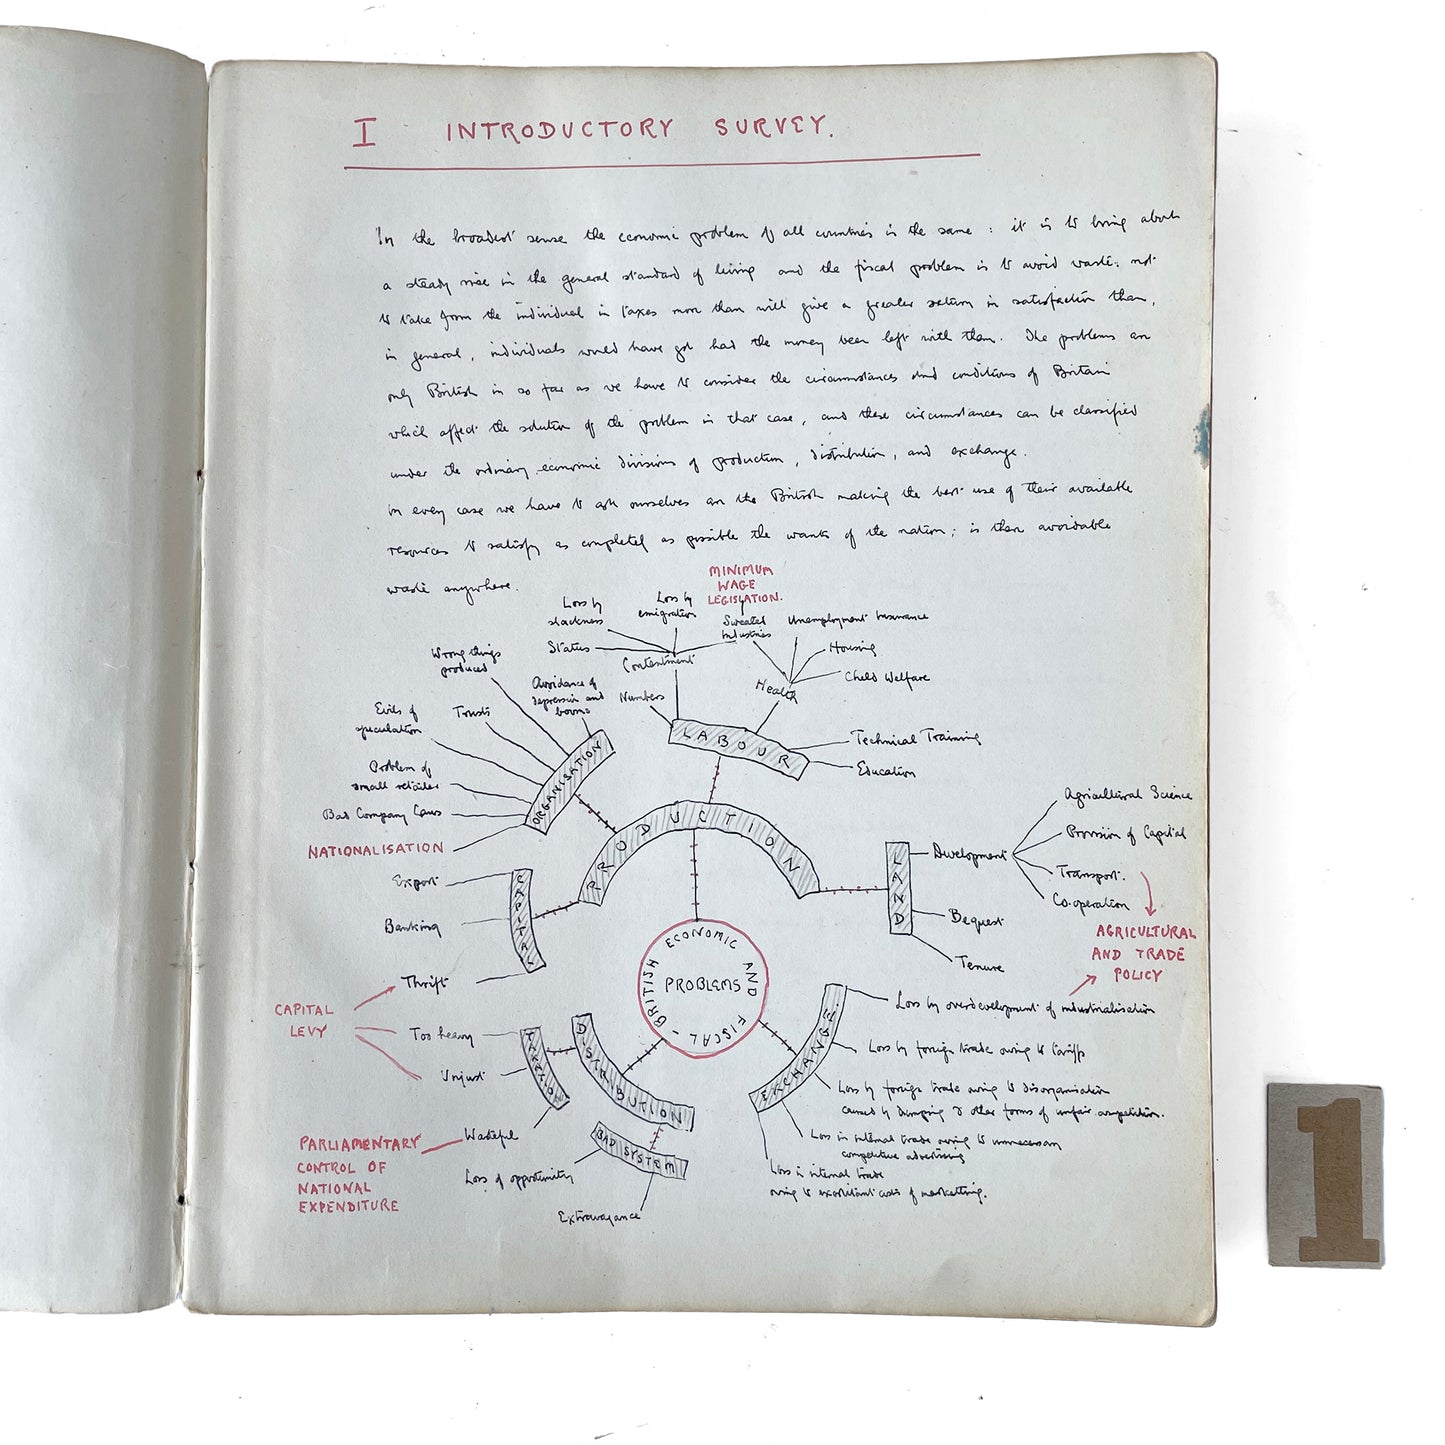 I INTRODUCTORY SURVEY.
In the broadest sense the economic problem of all countries is the same : it is to bring about
a steady rise in the general standard of living and the fiscal problem is to avoid waste; not
to take from the individual in taxes more than will give a greater return in satisfaction than,
in general, individuals would have got had the money been left with them. The problems are
only British in so far as we have to consider the circumstances and conditions of Britain
which affect the solution of the problem in that case, and these circumstances can be classified
under the ordinary economic divisions of production, distribution, and exchange.
In every case we have to ask ourselves are the British making the best use of their available
resources to satisfy as completely as possible the wants of the nation; is there avoidable
waste anywhere.
MINIMUM
WAGE
LEGISLATION.
Loss by
slackness
Loss by
emigration
Sweated
Industries
Unemployment Insurance
Status
Contentment
Housing
Wrong things
produced
Avoidance of
depression and
booms
Numbers
Health
Child Welfare
Evils of
speculation
Trusts
LABOUR
Technical Training
Education
ORGANISATION
Problem of
small retailer
Bad Company Laws
NATIONALISATION
PRODUCTION
Agricultural Science
Provision of Capital
Development
Transport.
Co-operation
LAND
Bequest
Tenure
AGRICULTURAL
AND TRADE
POLICY
Export
Banking
Thrift
CAPITAL
BRITISH ECONOMIC AND FISCAL -
PROBLEMS
CAPITAL
LEVY
Too heavy
Unjust
Wasteful
TAXATION
DISTRIBUTION
EXCHANGE.
Loss by overdevelopment of industrialisation
Loss by foreign trade owing to tariffs
Loss by foreign trade owing to disorganisation
caused by dumping & other forms of unfair competition.
Loss in internal trade owing to unnecessary
competitive advertising
Loss in internal trade
owing to exorbitant costs of marketting.
PARLIAMENTARY
CONTROL OF
NATIONAL
EXPENDITURE
BAD SYSTEM
Loss of opportunity
Extravagance
1